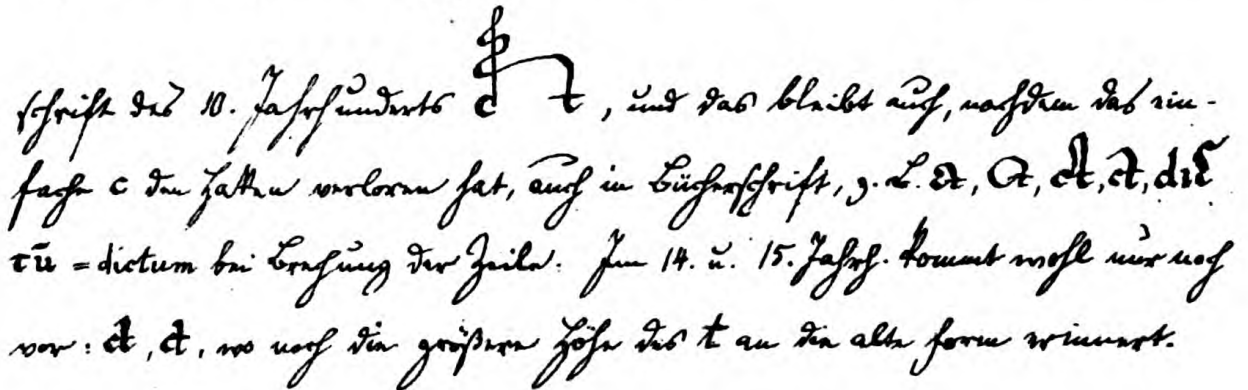 schrift des 10. Jahrhunderts c t, und das bleibt auch, nachdem das ein-
fache c den Haken verloren hat, auch in Bücherschrift, z. B. ct, ct, ct, ct, dic
tū = dictum bei Brechung der Zeile. Im 14. u. 15. Jahrh. kommt wohl nur noch
vor: ct, ct, wo noch die größere Höhe des t an die alte Form erinnert.